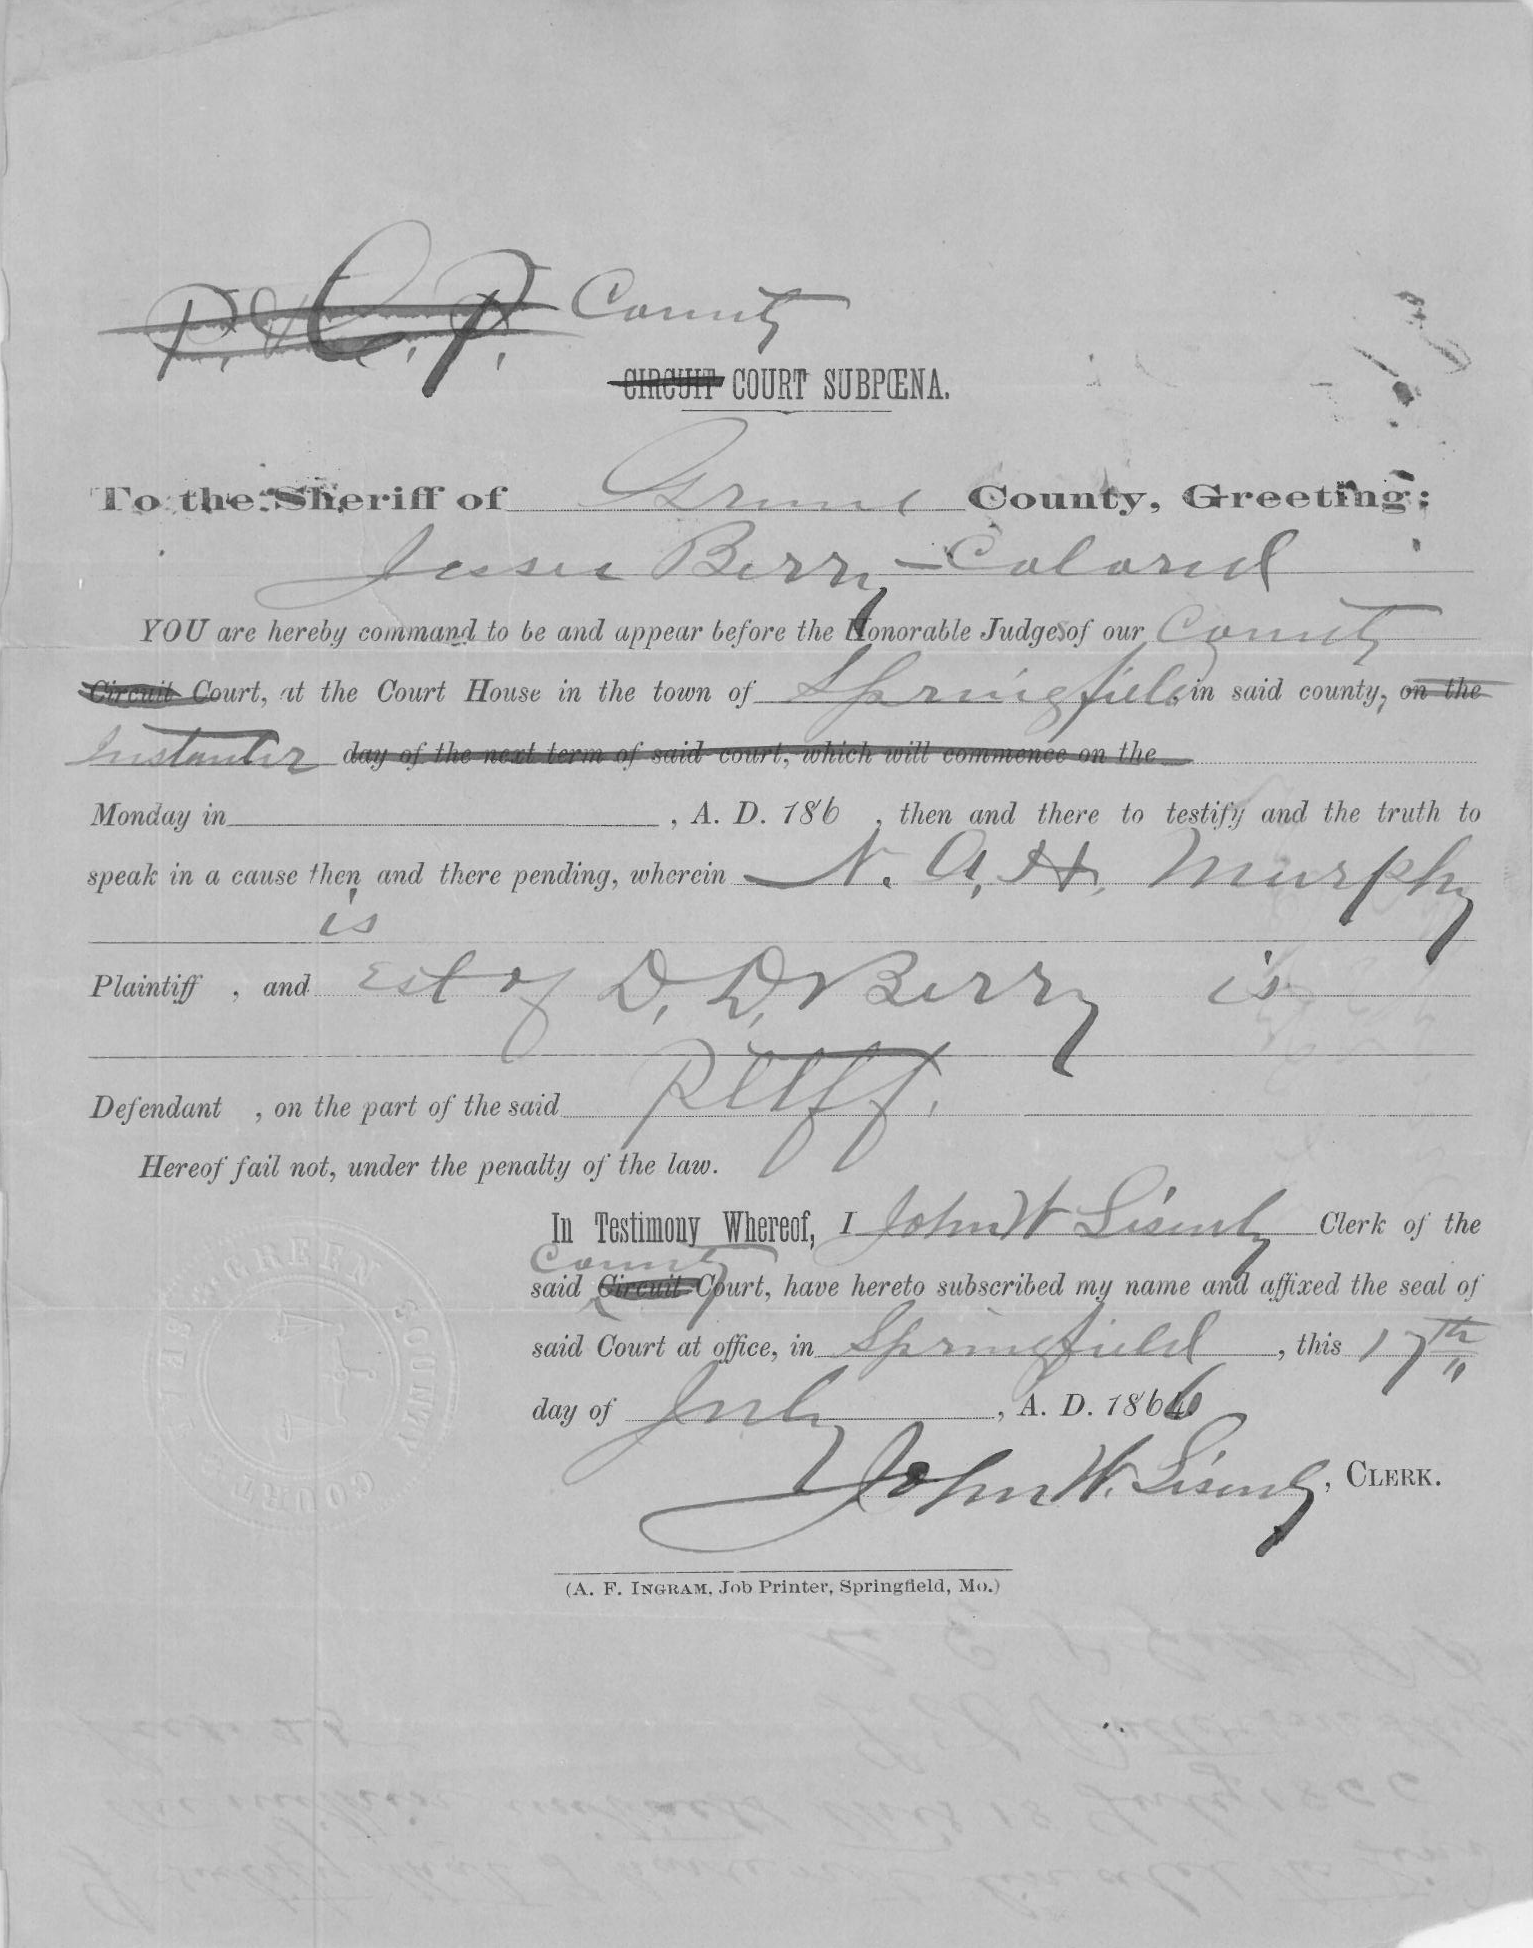 P. & C. P. County
CIRCUIT COURT SUBPŒNA.
To the Sheriff of Greene County, Greeting:
Jessee Berry - Colored
YOU are hereby command to be and appear before the Honorable Judges of our County
Circuit Court, at the Court House in the town of Springfield in said county, on the
Instanter day of the next term of said court, which will commence on the
Monday in , A. D. 186 , then and there to testify and the truth to
speak in a cause then and there pending, wherein N. A. H. Murphy
is
Plaintiff , and Est of D. D. Berry is
Defendant , on the part of the said Plff.
Hereof fail not, under the penalty of the law.
In Testimony Whereof, I John W Lisenby Clerk of the
County
said Circuit Court, have hereto subscribed my name and affixed the seal of
said Court at office, in Springfield , this 17th
day of July , A. D. 1866.
John W. Lisenby, CLERK.
(A. F. INGRAM, Job Printer, Springfield, Mo.)
GREEN COUNTY COURT